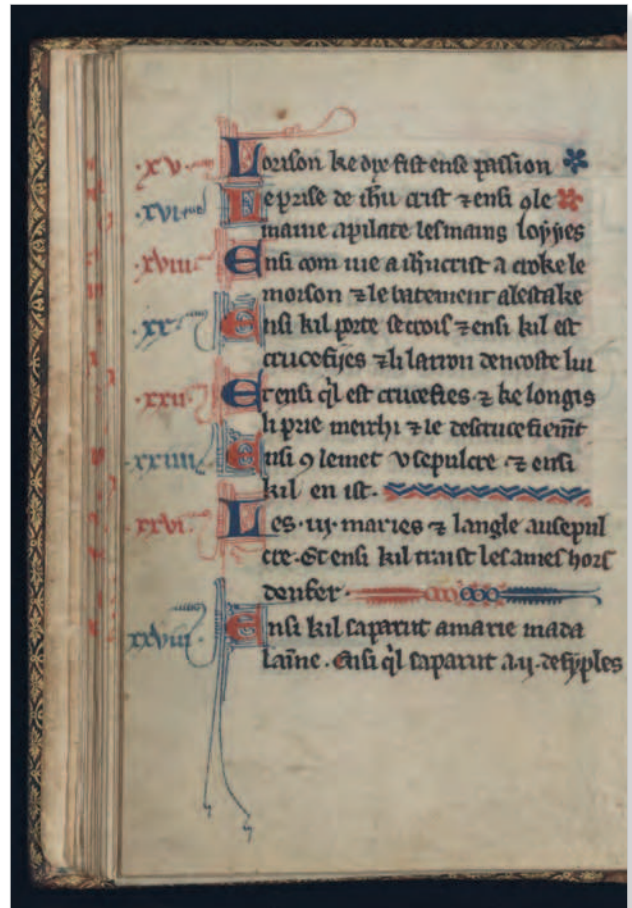 .xv. Lorison ke dix fist en se passion
.xvi. Le prise de ihu crist ⁊ ensi 9 le
maine a pilate les mains loyjies
.xviii. Ensi com nie a ihucrist a croke le
morson ⁊ le batement alestake
.xx. Ensi kil porte se crois ⁊ ensi kil est
crucefijes ⁊ li larron dencoste lui
.xxii. Et ensi ql est crucefies ⁊ ke longis
li prie merchi ⁊ le descrucefiemt
.xxiiii. Ensi 9 le met v sepulcre ⁊ ensi
kil en ist.
.xxvi. Les .iij. maries ⁊ langle au sepul
cre. Et ensi kil traist les ames hors
denfer.
.xxviii. Ensi kil saparut a marie mada
laine. Ensi ql saparut a .ij. desyples